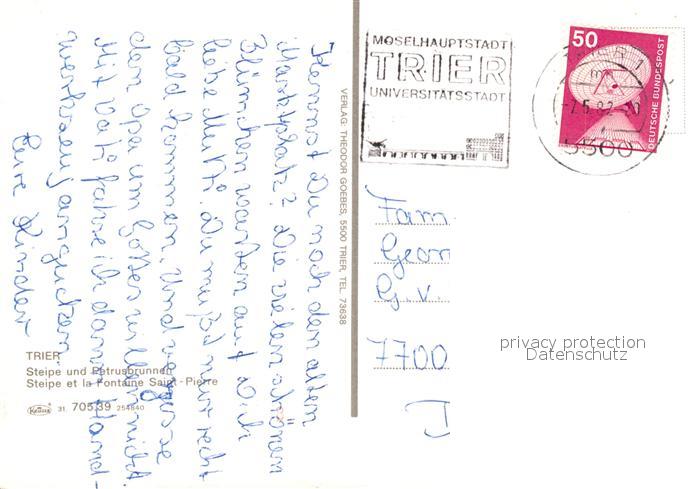 Kennst Du noch den alten
Marktplatz? Die vielen schönen
Blümchen warten auf Dich
liebe Mutti. Du mußt nur recht
bald kommen. Und vergesse
den Opa um Gottes willen nicht.
Mit Vati fahre ich dann Hand-
werkzeuj anguckem.
Eure Kinder
TRIER
Steipe und Petrusbrunnen
Steipe et la Fontaine Saint-Pierre
Krüger 31. 705.39 254840
VERLAG: THEODOR GOEBES, 5500 TRIER, TEL. 73638
MOSELHAUPTSTADT
TRIER
UNIVERSITÄTSSTADT
50
DEUTSCHE BUNDESPOST
-7.5.82-20
5500
Fam.
Geor
G. v.
7700
privacy protection
Datenschutz